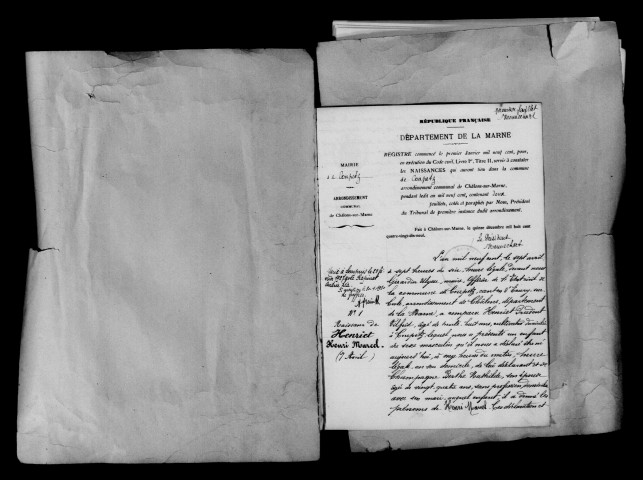 Premier feuillet
RÉPUBLIQUE FRANÇAISE
DÉPARTEMENT DE LA MARNE
REGISTRE commencé le premier Janvier mil neuf cent, pour,
en exécution du Code civil, Livre Ier, Titre II, servir à constater
les NAISSANCES qui auront lieu dans la commune
de Coupetz
arrondissement communal de Châlons-sur-Marne,
pendant ledit an mil neuf cent, contenant deux
feuillets, cotés et paraphés par Nous, Président
du Tribunal de première instance dudit arrondissement.
Fait à Châlons-sur-Marne, le quinze décembre mil huit cent
quatre-vingt-dix-neuf.
Le Président
MAIRIE
de Coupetz
ARRONDISSEMENT
COMMUNAL
de Châlons-sur-Marne
N° 1
Naissance de
Henriet
Henri Marcel.
(7 Avril)
L'an mil neuf cent, le sept avril
à sept heures du soir, heure légale, devant nous
Gérardin Ulysse, maire, officier de l'État civil de
la commune de Coupetz, canton d'Écury-sur-
Coole, arrondissement de Châlons, département
de la Marne, a comparu Henriet Prudent
âgé de trente huit ans, domicilié
à Coupetz, lequel nous a présenté un enfant
du sexe masculin qu'il nous a déclaré être né
aujourd'hui, à onze heures du matin, heure
légale, en son domicile, de lui déclarant et de
Champagne Berthe Mathilde, son épouse
âgée de vingt quatre ans, sans profession, domiciliée
avec son mari, auquel enfant, il a donné les
prénoms de Henri Marcel. Ces déclaration et